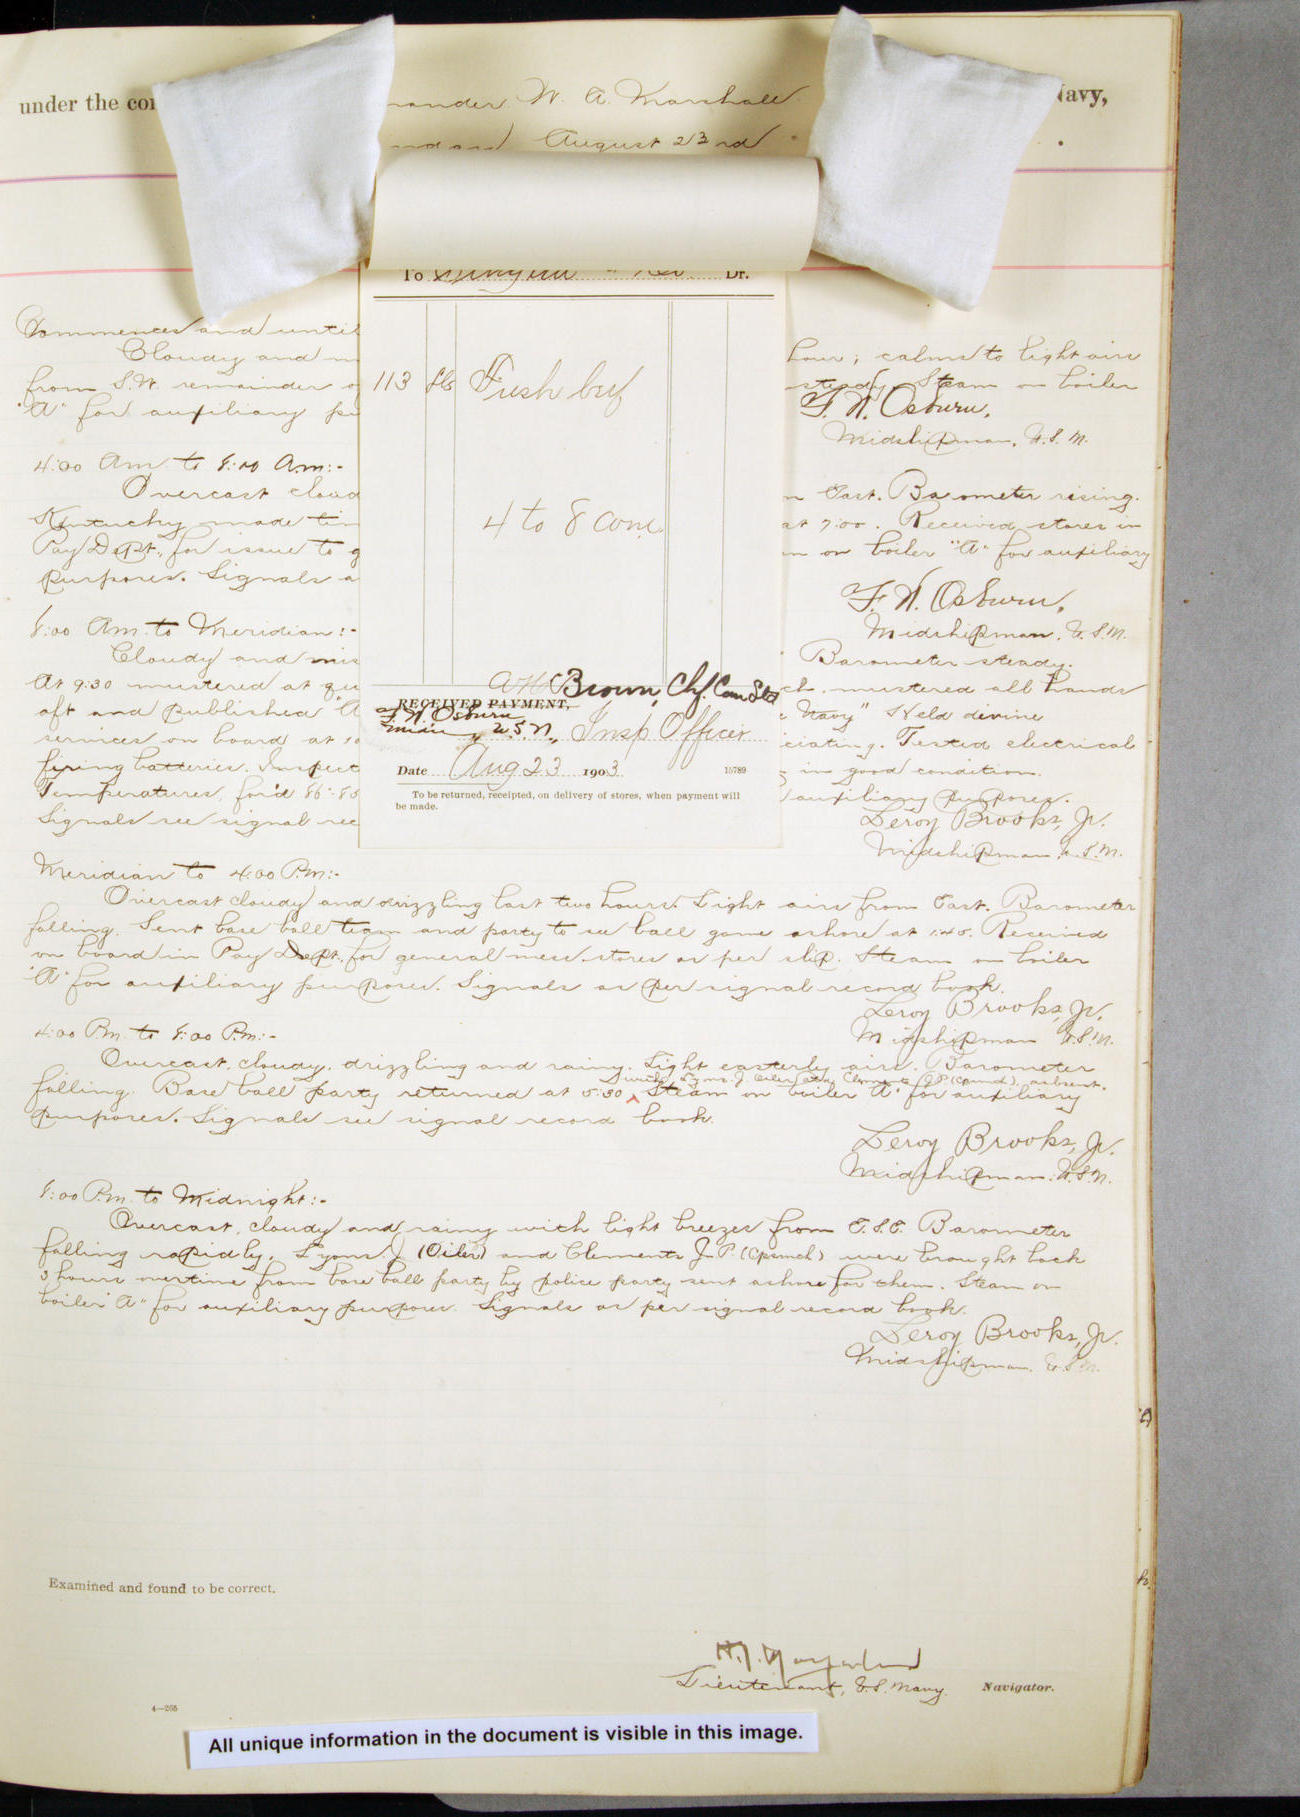 under the com
mander W. A. Marshall
Navy,
August 23rd
To Dr.
Commences and until
hour; calms to light airs
Cloudy and m
from S.W. remainder o
steady. Steam on boiler
"A" for auxiliary pu
F. N. Osburn,
Midshipman, U.S.N.
113 lbs Fresh beef
4 to 8 a.m.
4:00 A.m. to 8:00 A.m:-
Overcast cloud
m East. Barometer rising.
Kentucky made tim
at 7:00. Received stores in
Pay Dept., for issue to g
m on boiler "A" for auxiliary
purposes. Signals a
F. N. Osburn,
Midshipman, U.S.N.
8:00 A.m. to Meridian:-
Cloudy and mis
Barometer steady.
At 9:30 mustered at qu
ch. mustered all hands
aft and published "A
Navy" Held divine
services on board at 10
ciating. Tested electrical
firing batteries. Inspect
in good condition.
Temperatures, for'd 86°-85
auxiliary purposes.
Signals see signal rec
Leroy Brooks, Jr.
Midshipman, U.S.N.
Brown, Chf. Com Std
RECEIVED PAYMENT,
F. N. Osburn
Midn, U.S.N., Insp Officer
Date Aug 23 1903
15789
To be returned, receipted, on delivery of stores, when payment will
be made.
Meridian to 4:00 P.M:-
Overcast cloudy and drizzling last two hours. Light airs from East. Barometer
falling. Sent base ball team and party to see ball game ashore at 1:45. Received
on board in Pay Dept. for general mess stores as per slip. Steam on boiler
"A" for auxiliary purposes. Signals as per signal record book.
Leroy Brooks, Jr.
Midshipman U.S.N.
4:00 P.m. to 8:00 P.m:-
Overcast, cloudy, drizzling and rainy. Light easterly airs. Barometer
with Lyons, J. Oiler and Clements J.P. (Cpsmch), absent.
falling. Base ball party returned at 5:30 ‸ Steam on boiler "A" for auxiliary
purposes. Signals see signal record book.
Leroy Brooks, Jr.
Midshipman, U.S.N.
8:00 P.m. to Midnight:-
Overcast, cloudy and rainy with light breezes from E.S.E. Barometer
falling rapidly. Lyons J. (Oiler) and Clements J. P. (Cpsmch) were brought back
3 hours overtime from base ball party by police party sent ashore for them. Steam on
boiler "A" for auxiliary purposes. Signals as per signal record book.
Leroy Brooks, Jr.
Midshipman, U.S.N.
Examined and found to be correct.
Lieutenant, U.S. Navy. Navigator.
4—265
All unique information in the document is visible in this image.